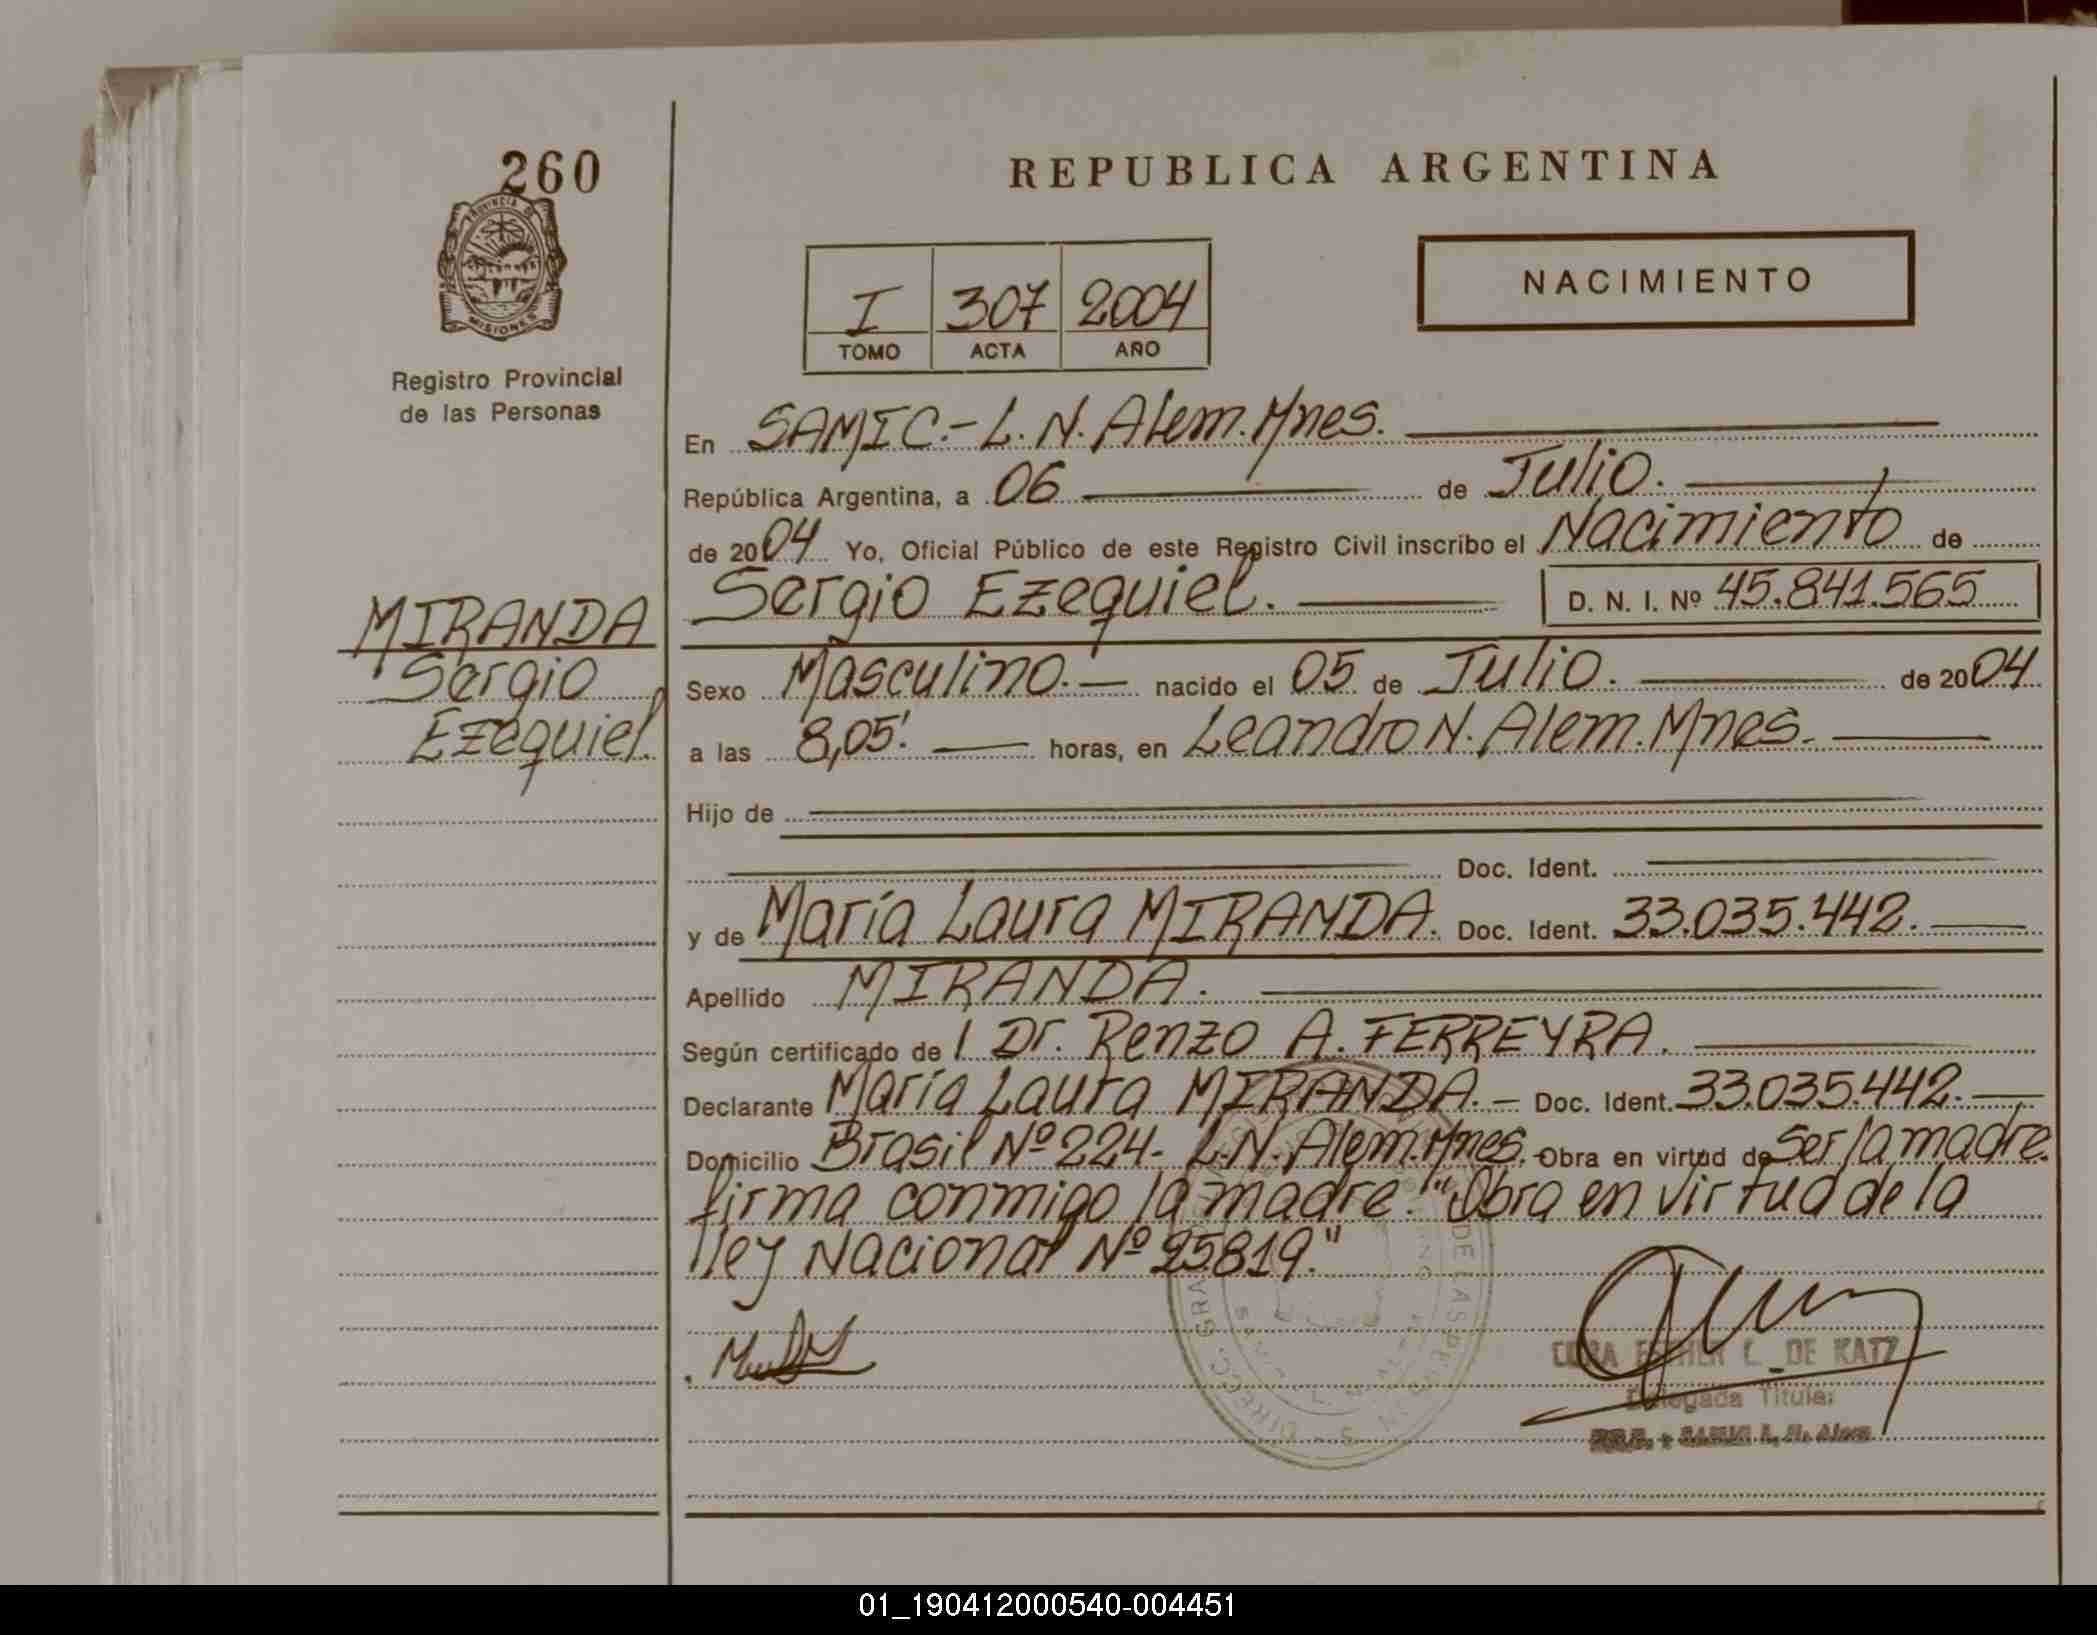 260
PROVINCIA DE
MISIONES
Registro Provincial
de las Personas
MIRANDA
Sergio
Ezequiel.
REPUBLICA ARGENTINA
I 307 2004
TOMO ACTA AÑO
NACIMIENTO
En SAMIC.- L. N. Alem. Mnes.
República Argentina, a 06 de Julio.
de 2004 Yo, Oficial Público de este Registro Civil inscribo el Nacimiento de
Sergio Ezequiel. D. N. I. Nº 45.841.565
Sexo Masculino.- nacido el 05 de Julio. de 2004
a las 8,05'. horas, en Leandro N. Alem. Mnes.
Hijo de
Doc. Ident.
y de María Laura MIRANDA. Doc. Ident. 33.035.442.
Apellido MIRANDA.
Según certificado de l Dr. Renzo A. FERREYRA.
Declarante María Laura MIRANDA.- Doc. Ident. 33.035.442.
Domicilio Brasil Nº 224- L.N. Alem. Mnes. Obra en virtud de Ser la madre.
firma conmigo la madre. "Obra en virtud de la
ley Nacional Nº 25819."
ESTHER L. DE KATZ
Delegada Titular
01_190412000540-004451